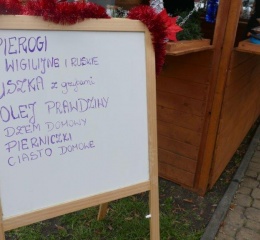 PIEROGI
WIGILIJNE i RUSKIE
USZKA z grzybami
OLEJ PRAWDZIWY
DŻEM DOMOWY
PIERNICZKI
CIASTO DOMOWE